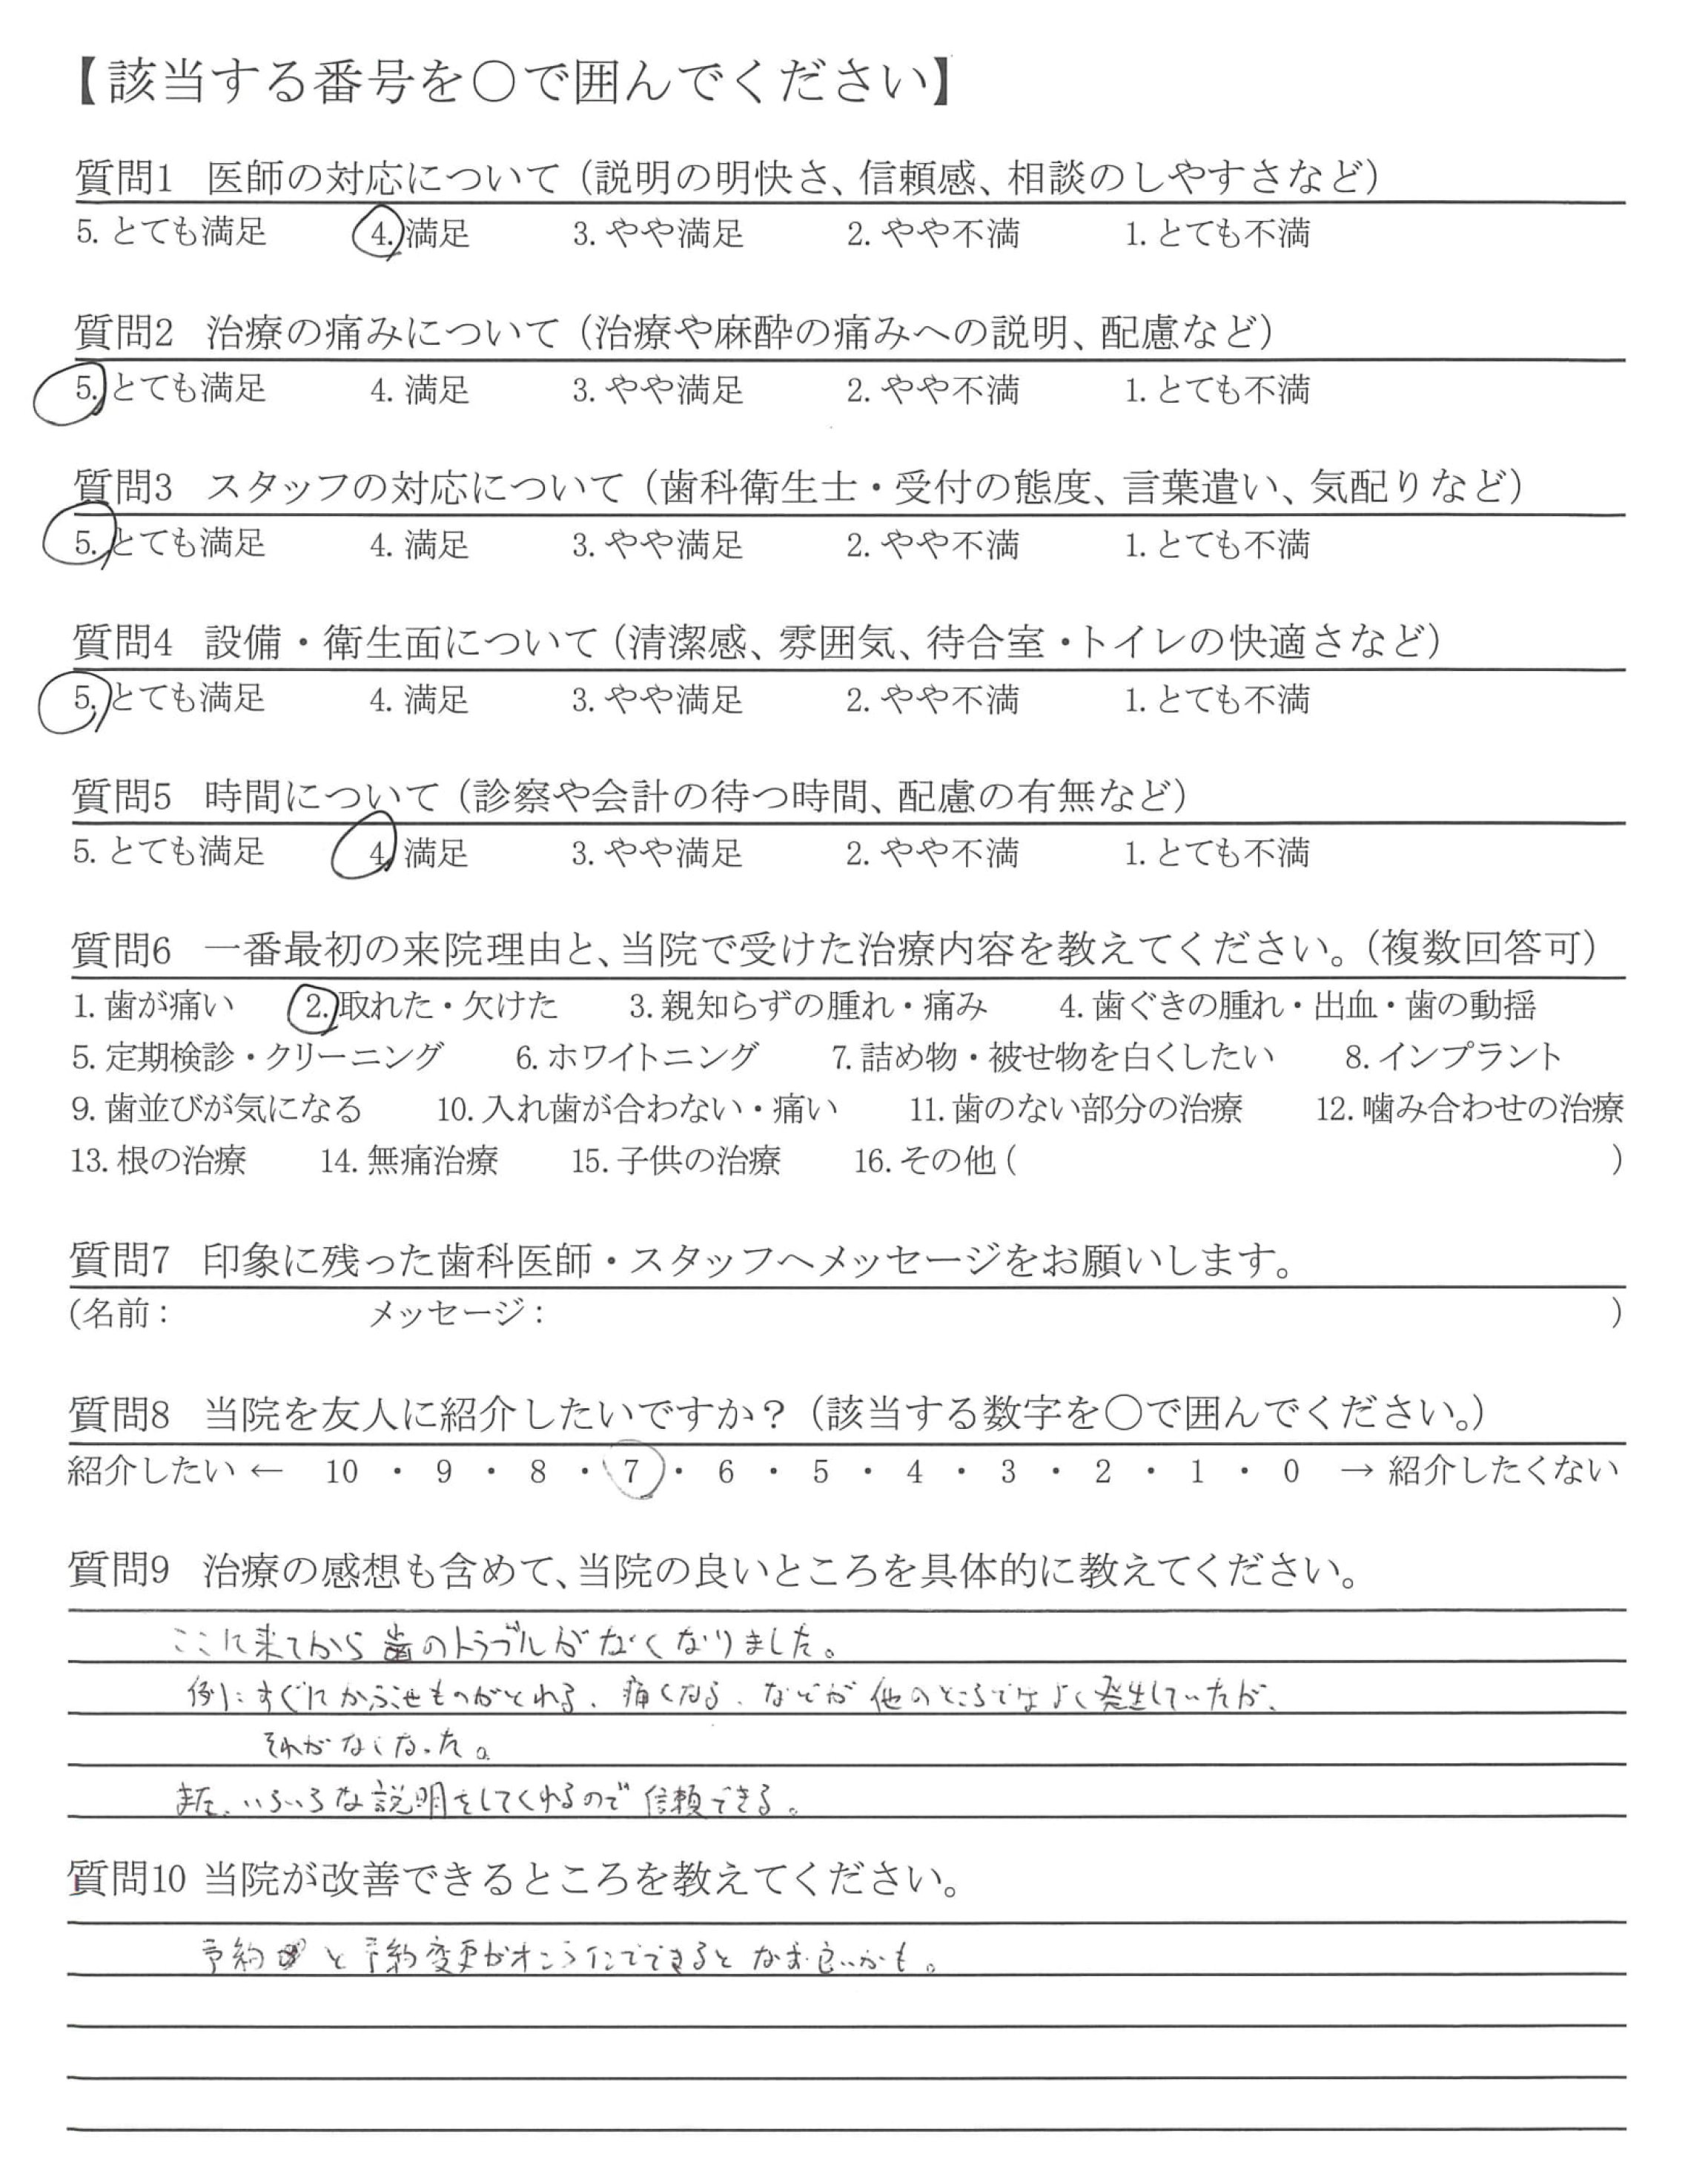 【該当する番号を○で囲んでください】
質問1 医師の対応について（説明の明快さ、信頼感、相談のしやすさなど）
5. とても満足 4. 満足 3. やや満足 2. やや不満 1. とても不満
質問2 治療の痛みについて（治療や麻酔の痛みへの説明、配慮など）
5. とても満足 4. 満足 3. やや満足 2. やや不満 1. とても不満
質問3 スタッフの対応について（歯科衛生士・受付の態度、言葉遣い、気配りなど）
5. とても満足 4. 満足 3. やや満足 2. やや不満 1. とても不満
質問4 設備・衛生面について（清潔感、雰囲気、待合室・トイレの快適さなど）
5. とても満足 4. 満足 3. やや満足 2. やや不満 1. とても不満
質問5 時間について（診察や会計の待つ時間、配慮の有無など）
5. とても満足 4. 満足 3. やや満足 2. やや不満 1. とても不満
質問6 一番最初の来院理由と、当院で受けた治療内容を教えてください。（複数回答可）
1. 歯が痛い 2. 取れた・欠けた 3. 親知らずの腫れ・痛み 4. 歯ぐきの腫れ・出血・歯の動揺
5. 定期検診・クリーニング 6. ホワイトニング 7. 詰め物・被せ物を白くしたい 8. インプラント
9. 歯並びが気になる 10. 入れ歯が合わない・痛い 11. 歯のない部分の治療 12. 噛み合わせの治療
13. 根の治療 14. 無痛治療 15. 子供の治療 16. その他（ ）
質問7 印象に残った歯科医師・スタッフへメッセージをお願いします。
（名前： メッセージ： ）
質問8 当院を友人に紹介したいですか？（該当する数字を○で囲んでください。）
紹介したい ← 10 ・ 9 ・ 8 ・ 7 ・ 6 ・ 5 ・ 4 ・ 3 ・ 2 ・ 1 ・ 0 → 紹介したくない
質問9 治療の感想も含めて、当院の良いところを具体的に教えてください。
ここに来てから歯のトラブルがなくなりました。
例に すぐにかぶせものがとれる、痛くなる、などが他のところではよく発生していたが、
それがなくなった。
また、いろいろな説明をしてくれるので信頼できる。
質問10 当院が改善できるところを教えてください。
予約と予約変更がオンラインでできるとなお良いかも。